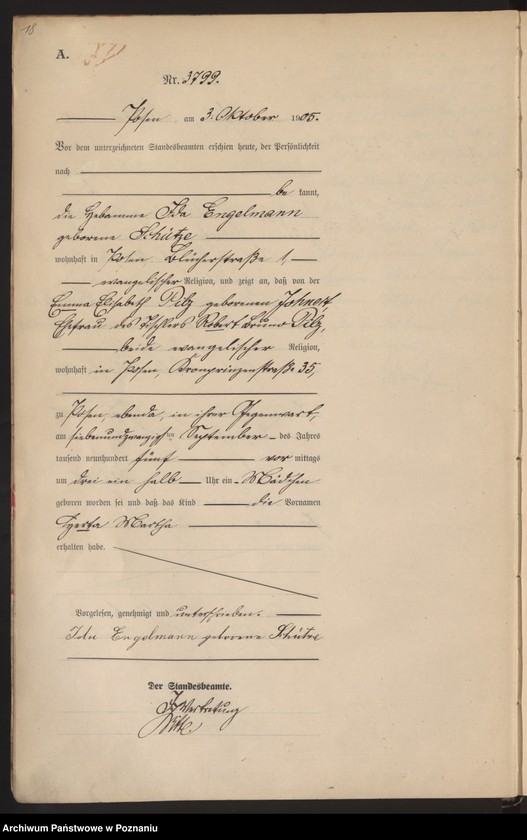 18
A.
Nr. 3799.
Posen am 3. Oktober 1905.
Vor dem unterzeichneten Standesbeamten erschien heute, der Persönlichkeit
nach
be kannt,
die Hebamme Ida Engelmann
geborene Schütze
wohnhaft in Posen Blücherstraße 1,
evangelischer Religion, und zeigt an, daß von der
Emma Elisabeth Pilz geborenen
Ehefrau des Tischlers Robert Bruno Pilz,
beide evangelischer Religion,
wohnhaft in Posen, Kronprinzenstraße 35,
zu Posen, ebenda, in ihrer Gegenwart,
am siebenundzwanzigsten September des Jahres
tausend neunhundert fünf vor mittags
um drei ein halb Uhr ein Mädchen
geboren worden sei und daß das Kind die Vornamen
Herta Martha
erhalten habe.
Vorgelesen, genehmigt und unterschrieben.
Ida Engelmann geborene Schütze
Der Standesbeamte.
In Vertretung
Archiwum Państwowe w Poznaniu